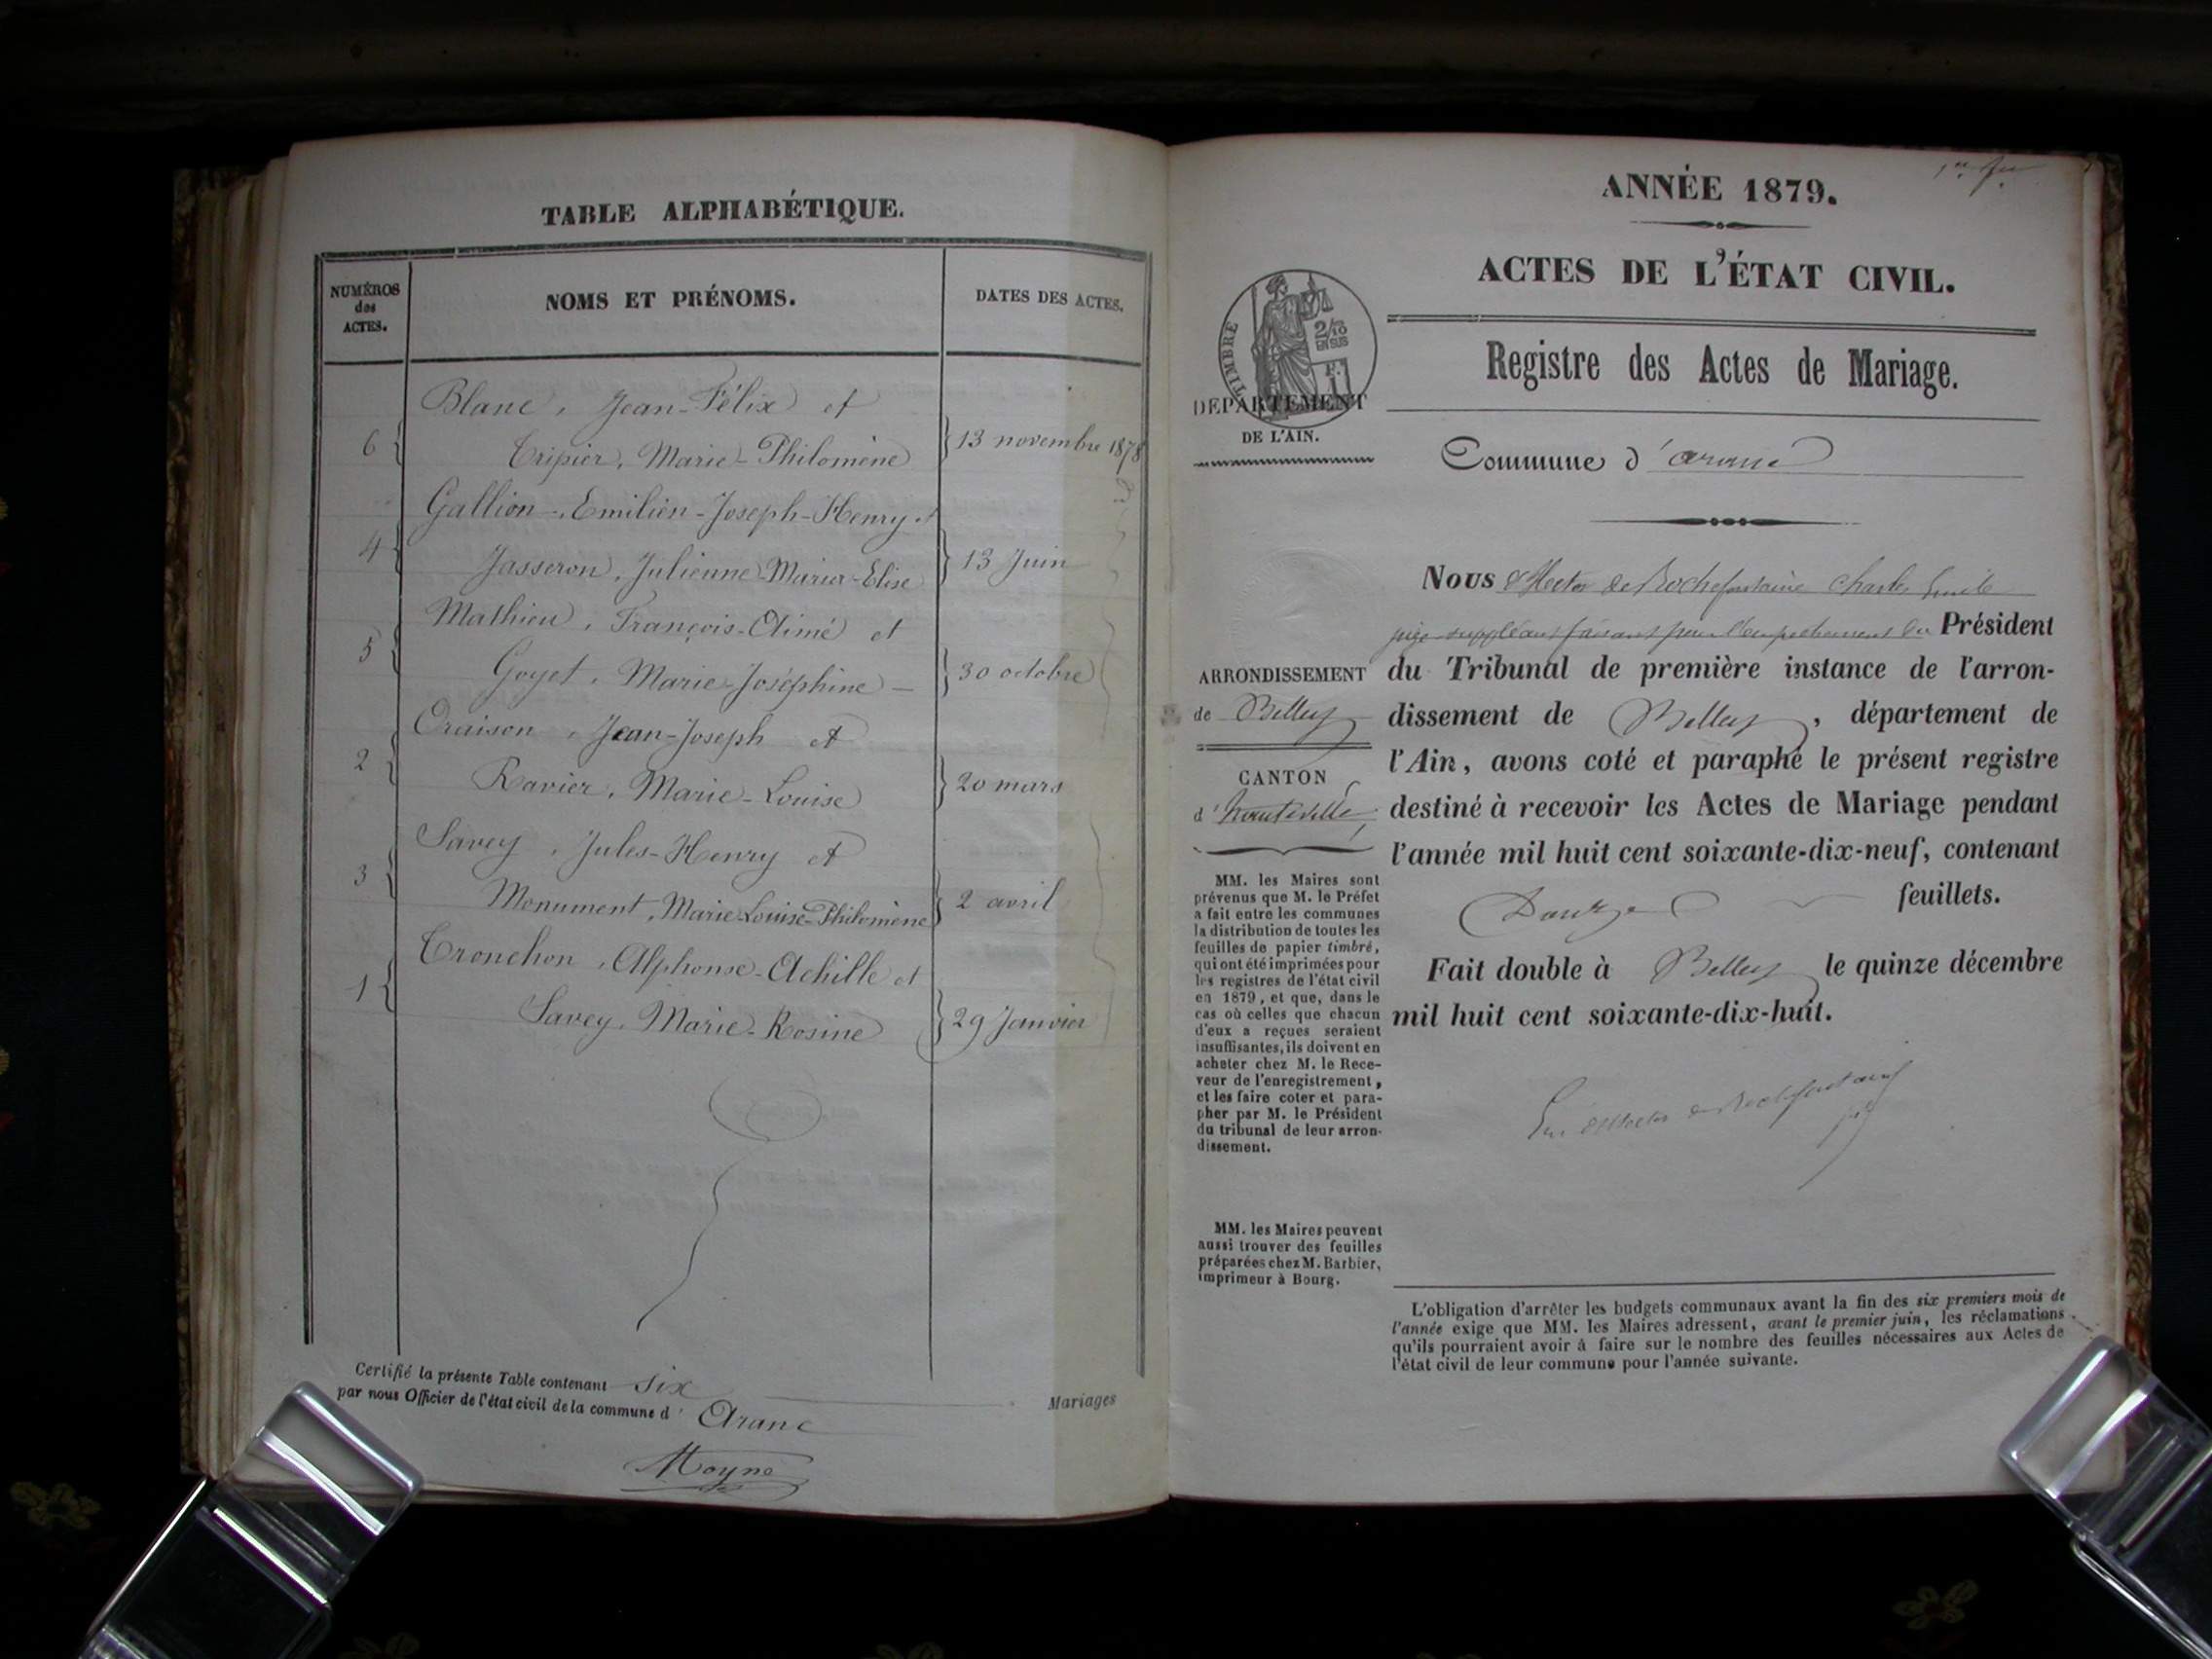 TABLE ALPHABÉTIQUE.
NUMÉROS
des
ACTES.
NOMS ET PRÉNOMS.
DATES DES ACTES.
Blanc, Jean-Félix et
6 { Tripier, Marie-Philomène } 13 novembre 1878
Gallion, Emilien-Joseph-Henry et
4 { Jasseron, Julienne-Maria-Elise } 13 Juin
Mathieu, François-Aimé et
5 { Goyet, Marie-Joséphine } 30 octobre
Oraison, Jean-Joseph et
2 { Ravier, Marie-Louise } 20 mars
Savey, Jules-Henry et
3 { Monument, Marie-Louise-Philomène } 2 avril
Tronchon, Alphonse-Achille et
1 { Savey, Marie-Rosine } 29 Janvier
Certifié la présente Table contenant six Mariages
par nous Officier de l'état civil de la commune d' Aranc
Moyne
ANNÉE 1879.
ACTES DE L'ÉTAT CIVIL.
Registre des Actes de Mariage.
TIMBRE
2/10
EN SUS
DÉPARTEMENT
DE L'AIN.
Commune d'Aranc
ARRONDISSEMENT
de Belley
CANTON
d'hauteville
MM. les Maires sont
prévenus que M. le Préfet
a fait entre les communes
la distribution de toutes les
feuilles de papier timbré,
qui ont été imprimées pour
les registres de l'état civil
en 1879, et que, dans le
cas où celles que chacun
d'eux a reçues seraient
insuffisantes, ils doivent en
acheter chez M. le Rece-
veur de l'enregistrement,
et les faire coter et para-
pher par M. le Président
du tribunal de leur arron-
dissement.
MM. les Maires peuvent
aussi trouver des feuilles
préparées chez M. Barbier,
imprimeur à Bourg.
Nous d'Hector de Rochefontaine Charles Emile
juge suppléant faisant pour l'empêchement du Président
du Tribunal de première instance de l'arron-
dissement de Belley, département de
l'Ain, avons coté et paraphé le présent registre
destiné à recevoir les Actes de Mariage pendant
l'année mil huit cent soixante-dix-neuf, contenant
Douze feuillets.
Fait double à Belley le quinze décembre
mil huit cent soixante-dix-huit.
d'Hector de Rochefontaine
L'obligation d'arrêter les budgets communaux avant la fin des six premiers mois de
l'année exige que MM. les Maires adressent, avant le premier juin, les réclamations
qu'ils pourraient avoir à faire sur le nombre des feuilles nécessaires aux Actes de
l'état civil de leur commune pour l'année suivante.